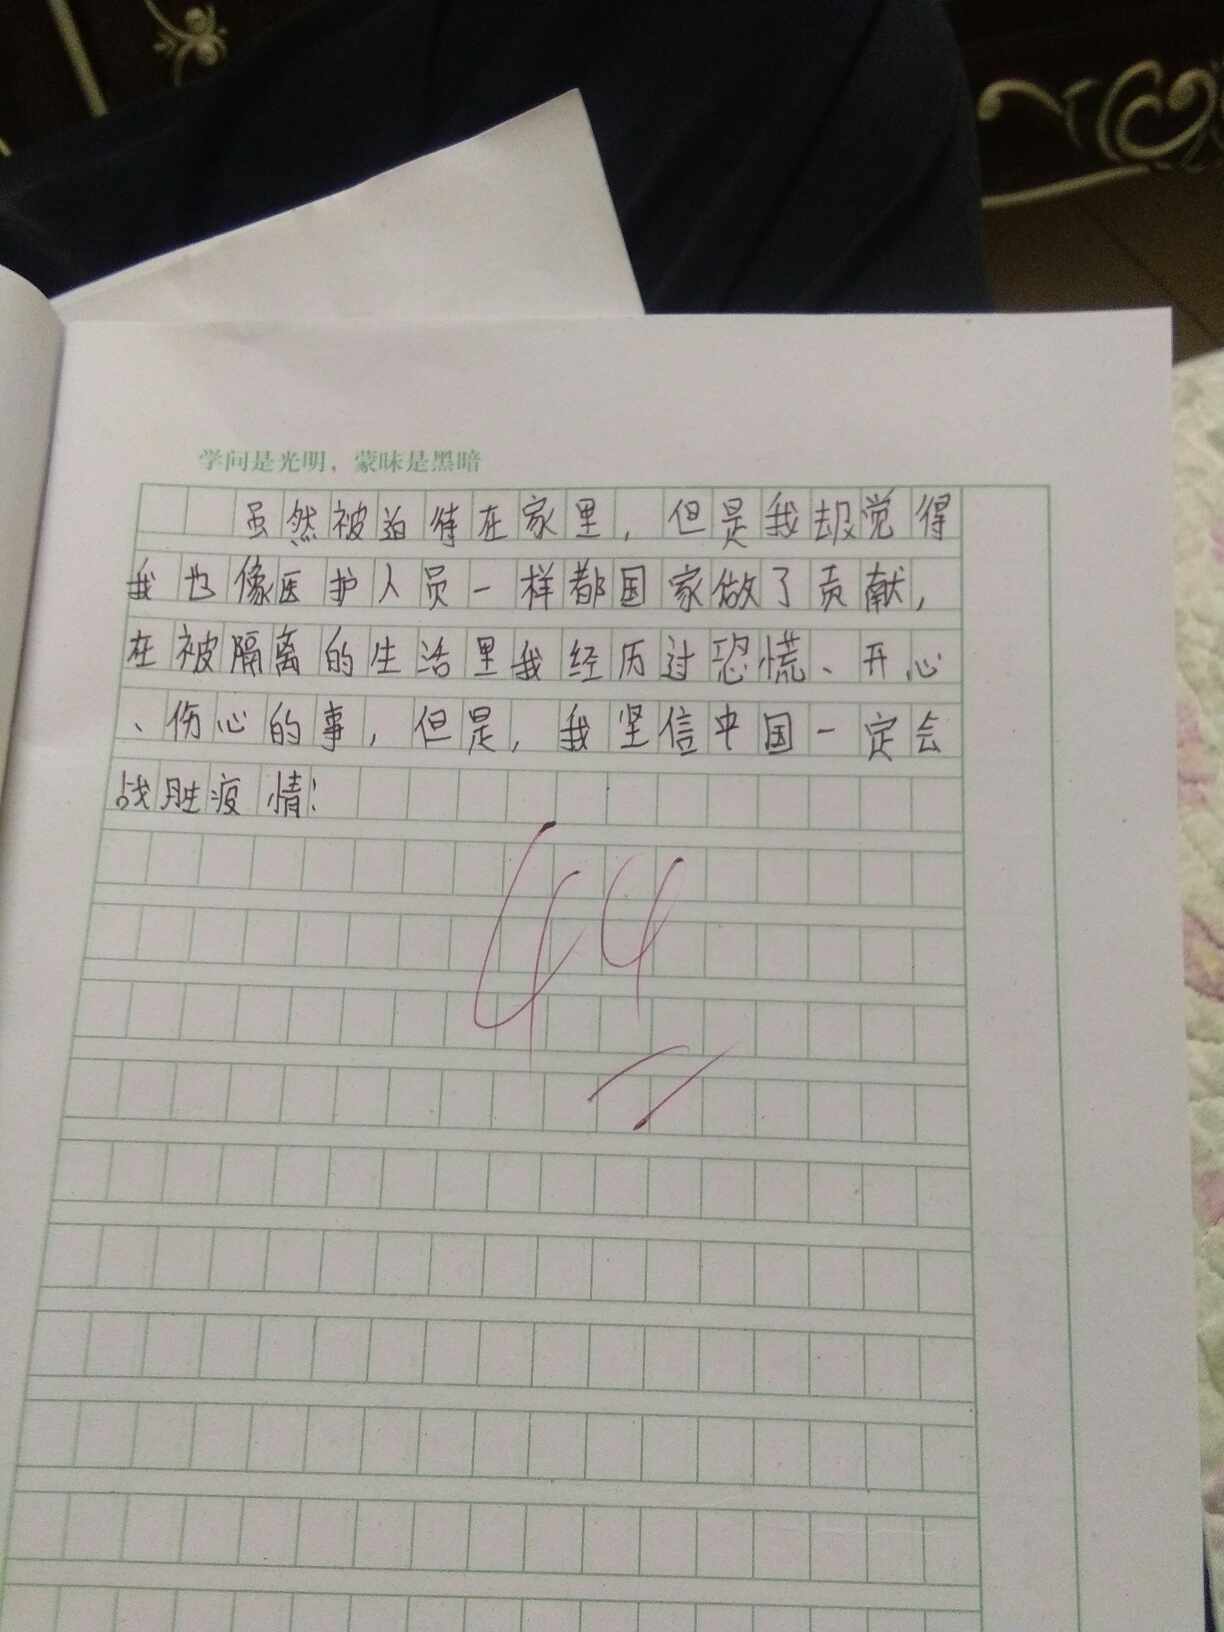 学问是光明，蒙昧是黑暗
虽然被迫待在家里，但是我却觉得
我也像医护人员一样都国家做了贡献，
在被隔离的生活里我经历过恐慌、开心
、伤心的事，但是，我坚信中国一定会
战胜疫情！
44